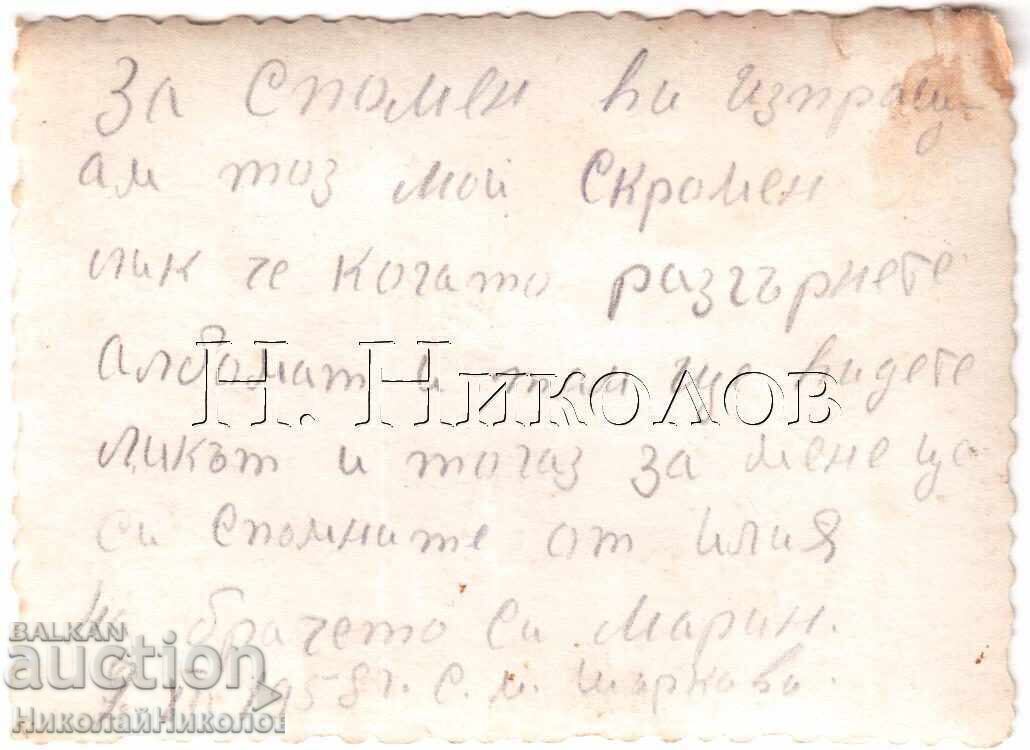 За Спомен ви изпращ-
ам тоз мой Скромен
лик че когато разгърнете
албомат и там ще видете
Ликът и тогаз за мене ще
си Спомните от Илия
на братето си Марин.
1958 г. С. м. Търново.
Н. Николов
BALKAN
auction
НиколайНиколов